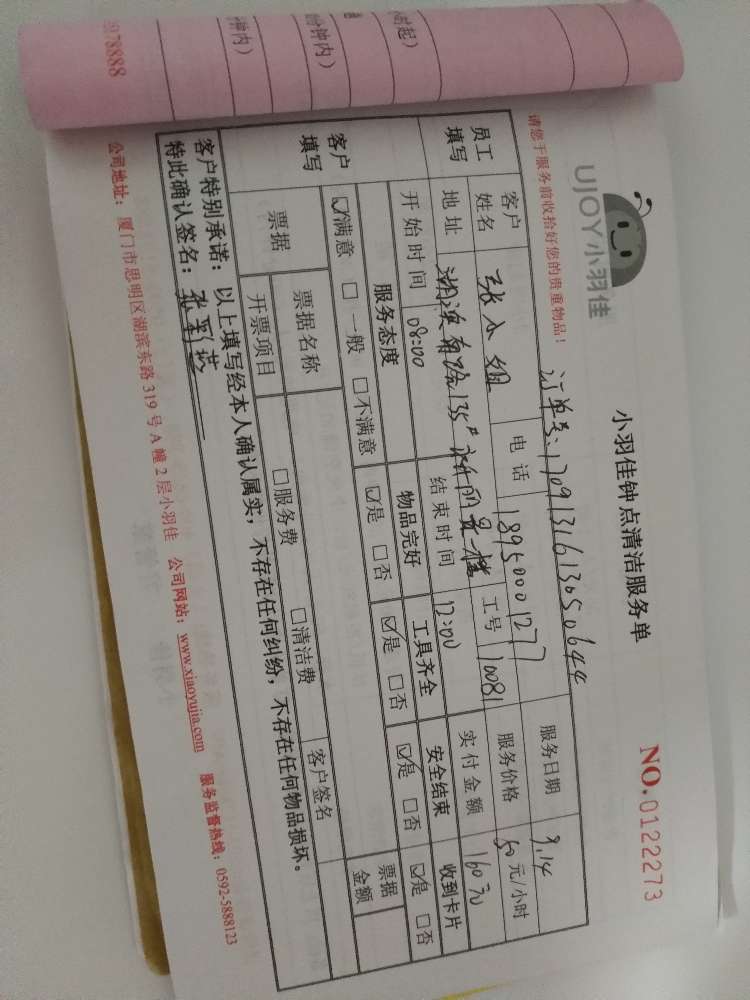 UJOY小羽佳
小羽佳钟点清洁服务单
NO.0122273
请您于服务前收拾好您的贵重物品!
订单号:1709131613050644
员工填写
客户姓名 张小姐 电话 18950001277 服务日期 9.14
地址 湖滨南路135# 工号 10081 服务价格 50元/小时
开始时间 08:00 结束时间 12:00 实付金额 160元
客户填写
服务态度 物品完好 工具齐全 安全结束 收到卡片
☑满意 □一般 □不满意 ☑是 □否 ☑是 □否 ☑是 □否 ☑是 □否
票据 票据名称 □服务费 □清洁费 客户签名 票据金额
开票项目
客户特别承诺:以上填写经本人确认属实,不存在任何纠纷,不存在任何物品损坏。
特此确认签名:
公司地址:厦门市思明区湖滨东路319号A幢2层小羽佳 公司网站:www.xiaoyujia.com 服务监督热线:0592-5888123
钟内)
分钟内)